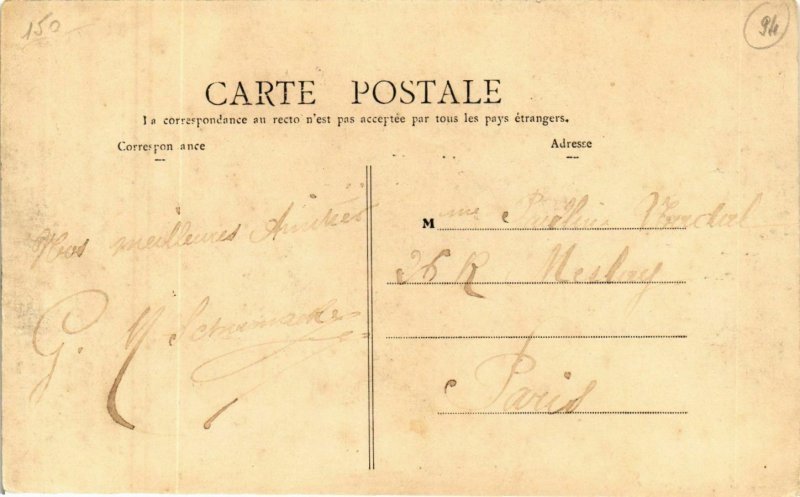 150
94
CARTE POSTALE
La correspondance au recto n'est pas acceptée par tous les pays étrangers.
Correspon ance
Adresse
Nos meilleures Amitiés
G.
Mme Pauline
26 R Meslay
Paris